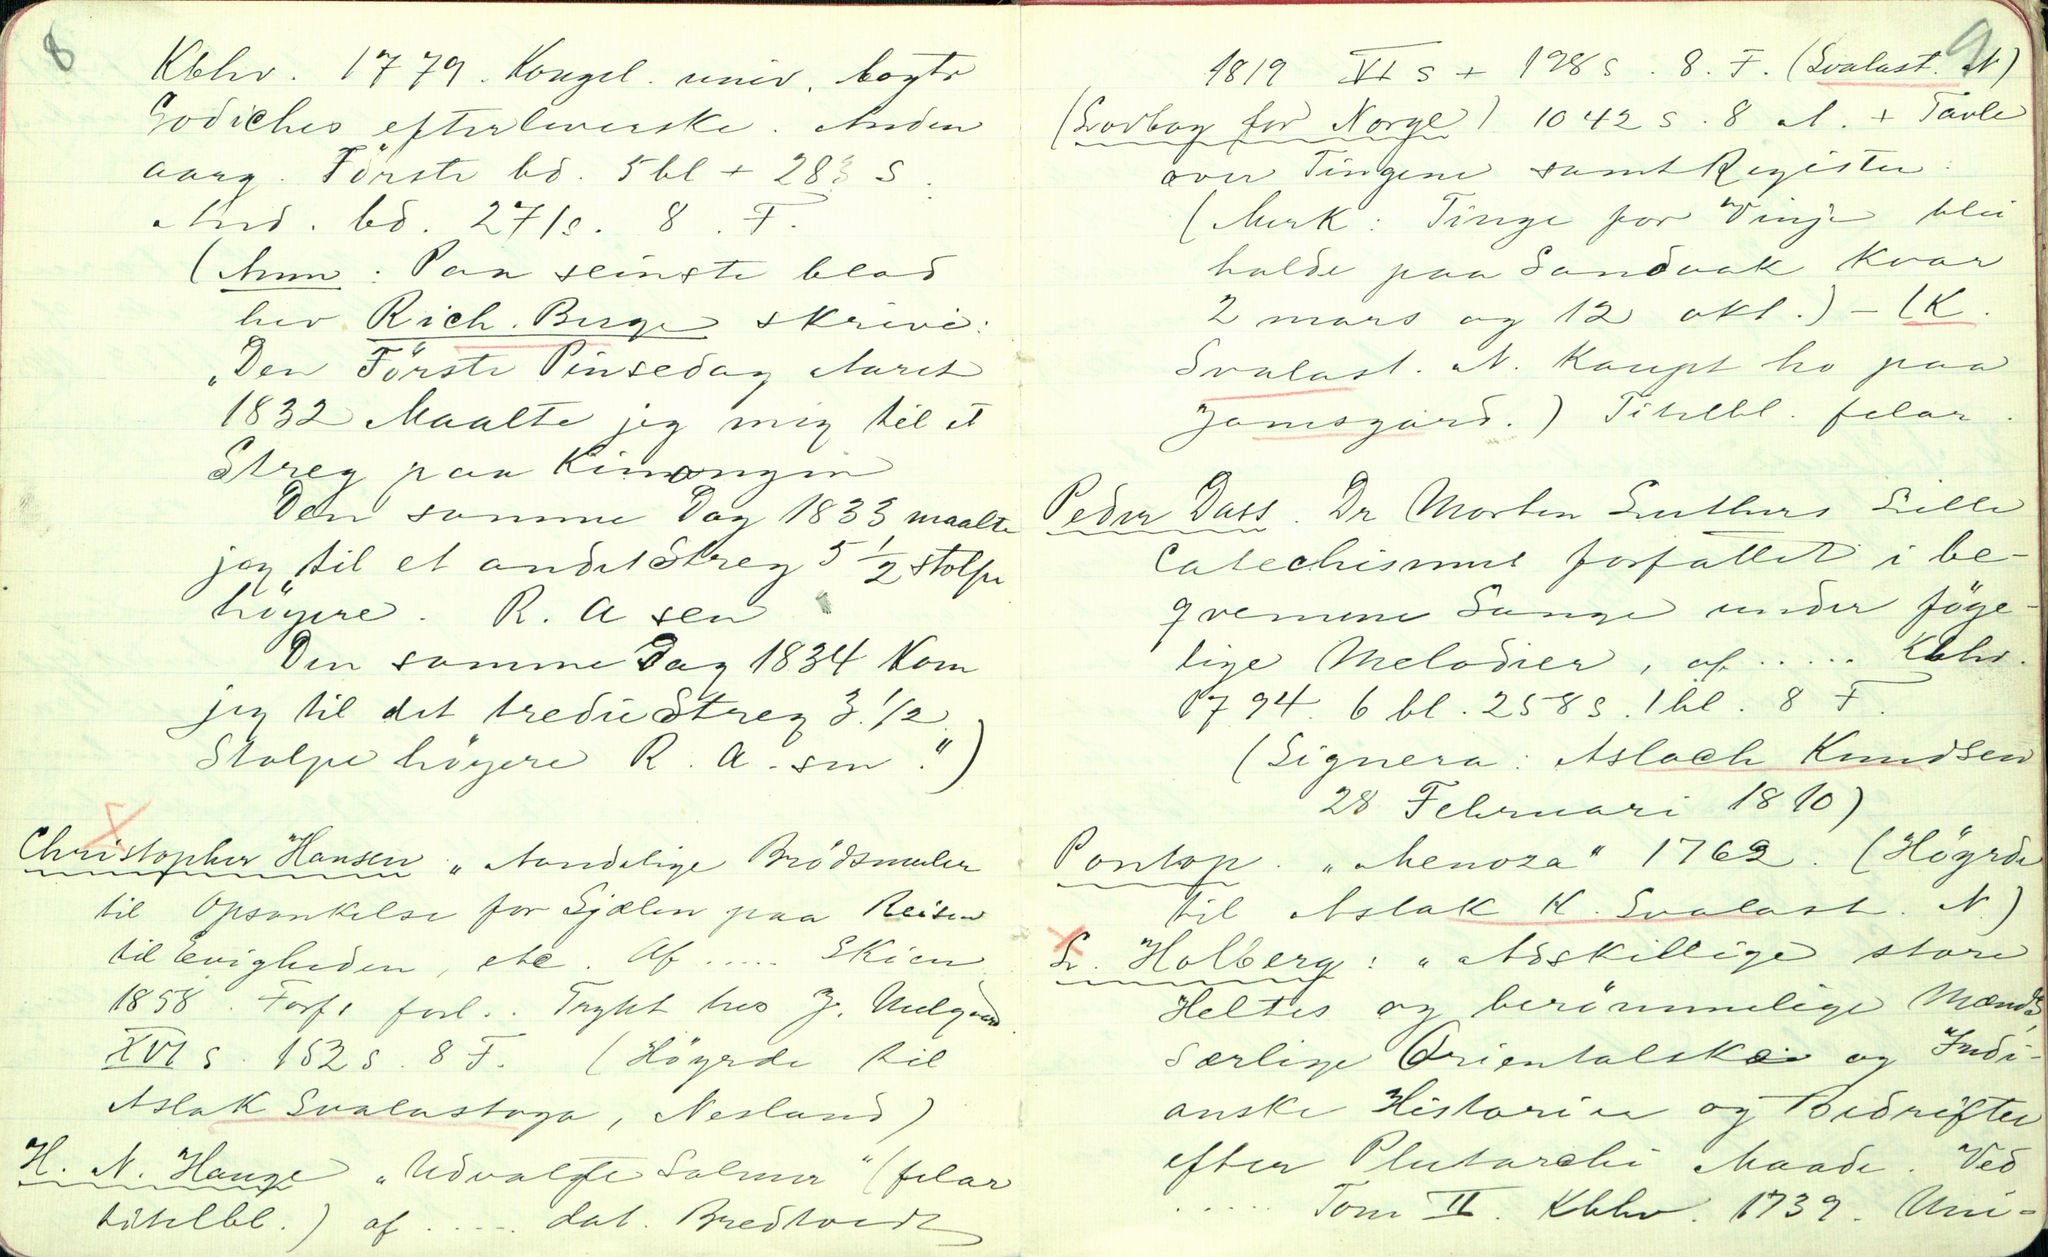 8
Kbhv. 1779. Kongel. univ. bogtr
Godiches efterleverske. Anden
aarg. Förste bd. 5 bl + 283 s.
And. bd. 271 s. 8. F.
(Anm: Paa seinste blad
hev Rich. Berge skrive:
„Den Förste Pinsedag Aaret
1832 Maalte jeg mig til et
Streg paa
Den samme Dag 1833 maalte
jeg til et andet Streg 5 1/2 stolpe
höyere. R. A sen
Den samme Dag 1834 Kom
jeg til det tredie Streg 3. 1/2
Stolpe höyere R. A. sen.")
Christopher Hansen „Aandelige Brödsmuler
til Opsankelse for Sjælen paa Reisen
til Evigheden, etc. Af ..... Skien
1858. Forf. forl.. Trykt hos J. Melgaard
XVI s. 152 s. 8 F. (Höyrde til
Aslak Svalastoga, Nesland)
H. N. Hauge „Udvalgte Salmer" (felar
titelbl.) af ..... dat. Bredtvedt
9
1819 VI s + 198 s. 8. F. (Svalast. N)
(Lovbog for Norge) 1042 s. 8 A. + Tavle
over Tingene samt Register.
(Merk: Tinge for Vinje blei
halde paa Sandvak Kvar
2 mars og 12 okt.) - (K.
Svalast. N. Kaupt ho paa
Jamsgard.) Titelbl. felar.
Peder Dass. Dr Morten Luthers Lille
Catechismus forfattet i be-
qvemme Sange under föye-
lige Melodier, af ..... Kbhv.
1794. 6 bl. 258 s. 1 bl. 8 F.
(Signera: Aslach Knudsen
28 Februari 1810)
Pontop. „Menoza" 1762. (Höyrde
til Aslak K. Svalast. N.)
L. Holberg: „Adskillige store
Heltes og berömmelige Mænds,
særlige Orientalske og Indi-
anske Historier og Bedrifter
efter Plutarchi Maade. Ved
..... Tom II. Kbhv. 1739. Uni-